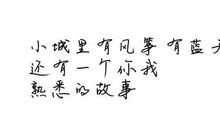 小城里有风筝有蓝天
还有一个你我
熟悉的故事